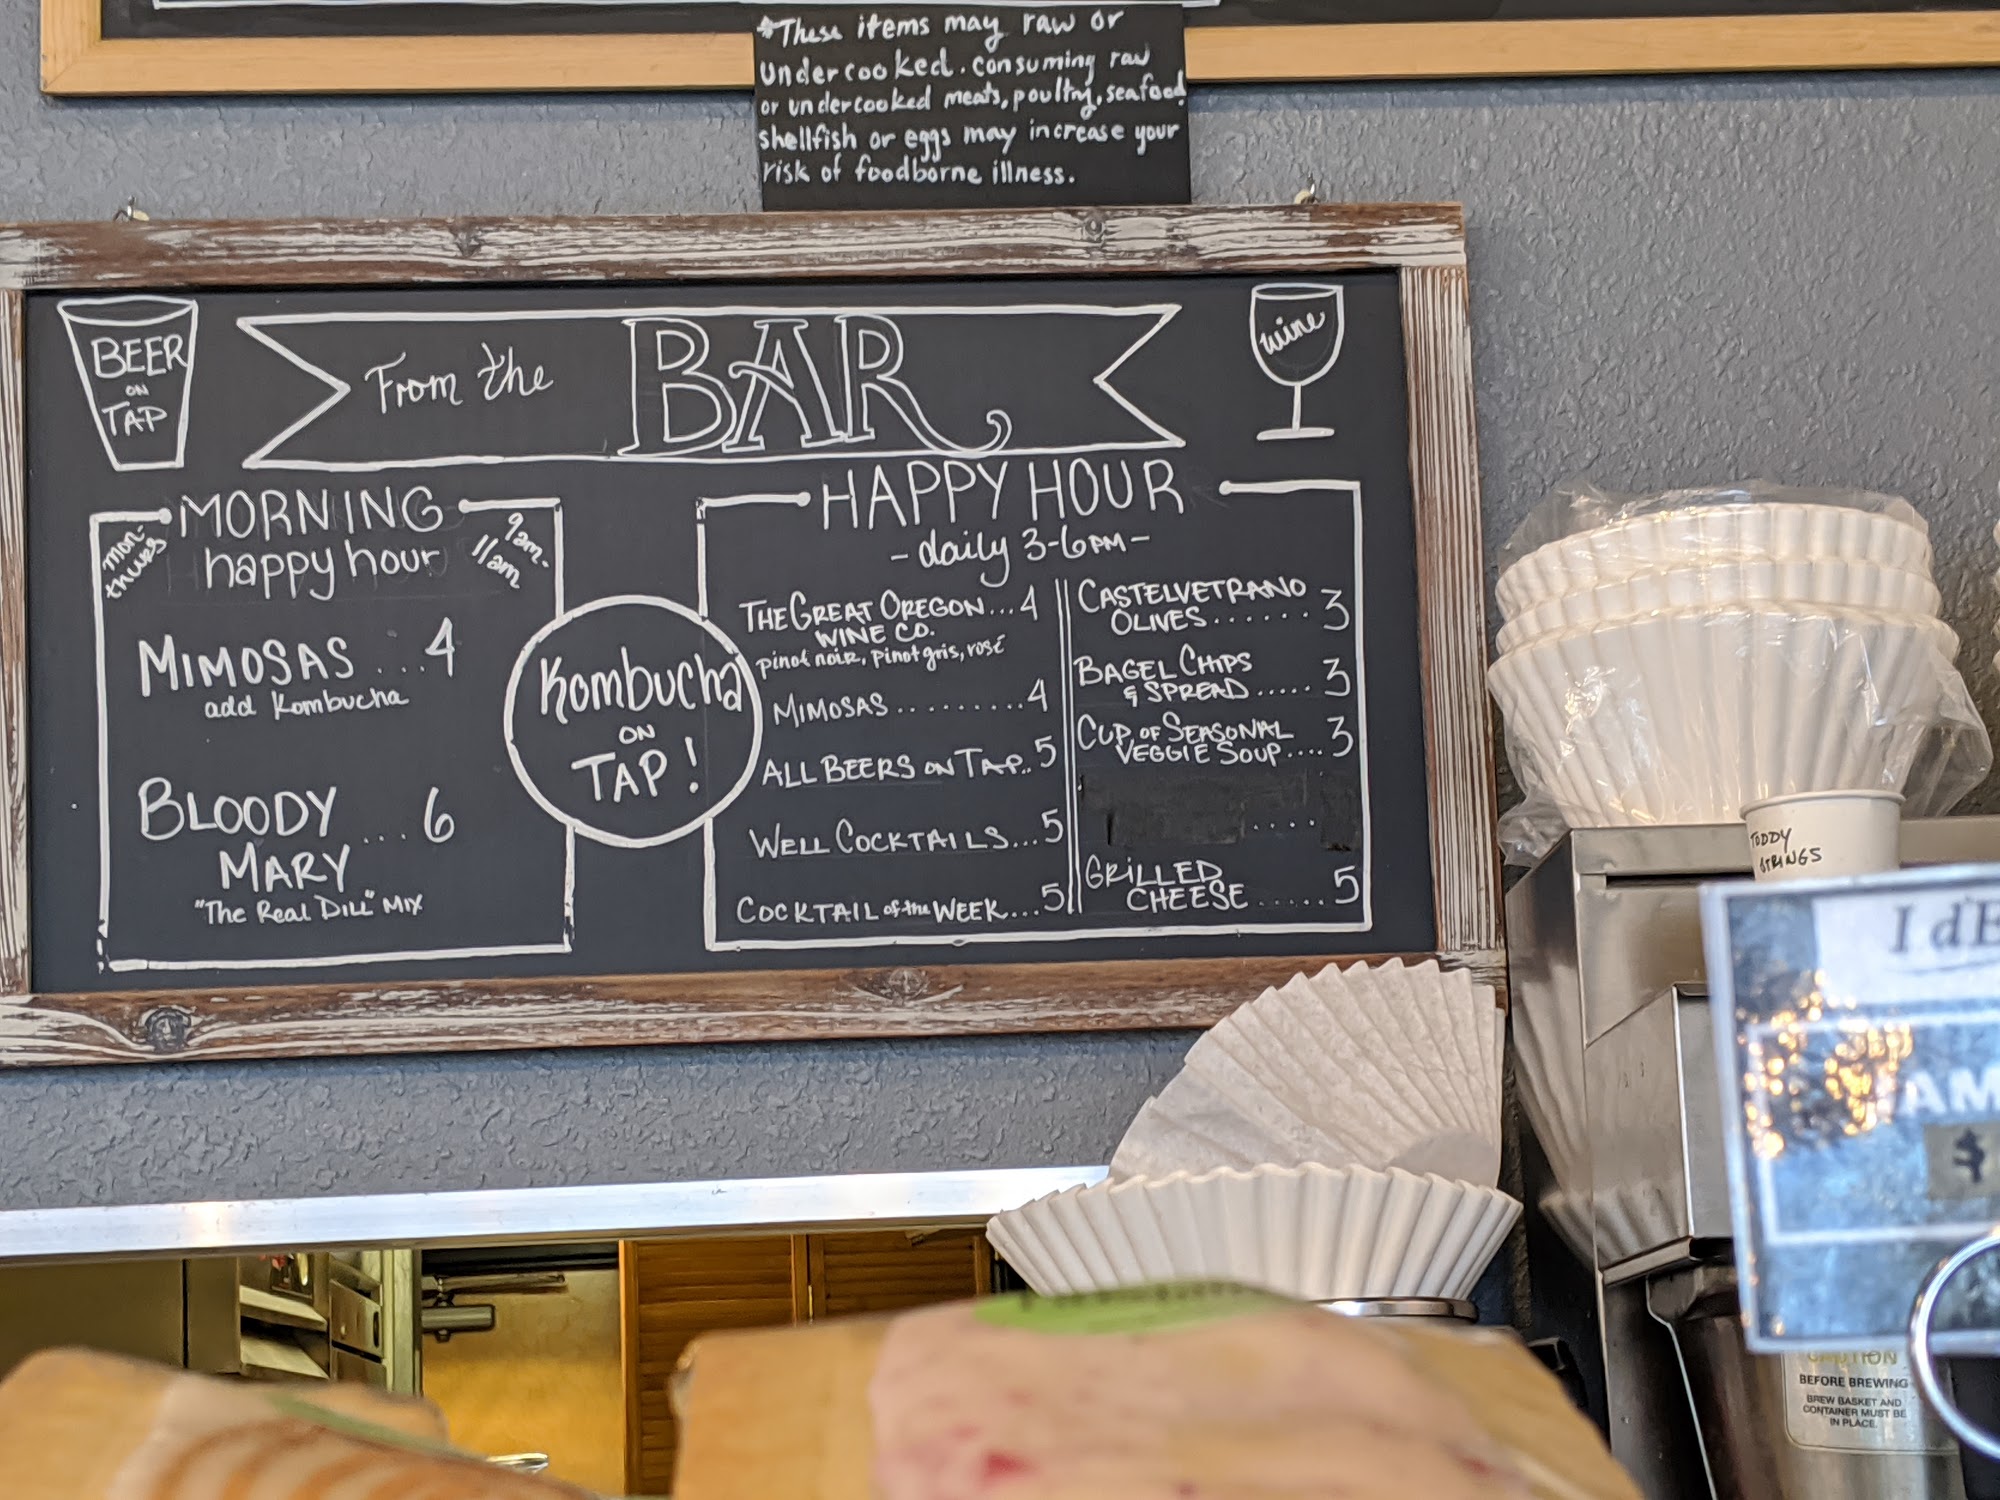 *These items may raw or
undercooked. consuming raw
or undercooked meats, poultry, seafood
shellfish or eggs may increase your
risk of foodborne illness.
BEER
ON
TAP
From the BAR
wine
MORNING
happy hour
mon-
thurs
9am-
11am
MIMOSAS ...4
add Kombucha
BLOODY ...6
MARY
"The Real Dill" MIX
Kombucha
ON
TAP!
HAPPY HOUR
-daily 3-6PM-
THE GREAT OREGON...4
WINE CO.
pinot noir, pinot gris, rosé
MIMOSAS.........4
ALL BEERS ON TAP..5
WELL COCKTAILS...5
COCKTAIL of the WEEK...5
CASTELVETRANO
OLIVES......3
BAGEL CHIPS
& SPREAD.....3
CUP OF SEASONAL
VEGGIE SOUP....3
....
GRILLED
CHEESE.....5
TODDY
STRINGS
I dE
AM
$
CAUTION
BEFORE BREWING
BREW BASKET AND
CONTAINER MUST BE
IN PLACE.